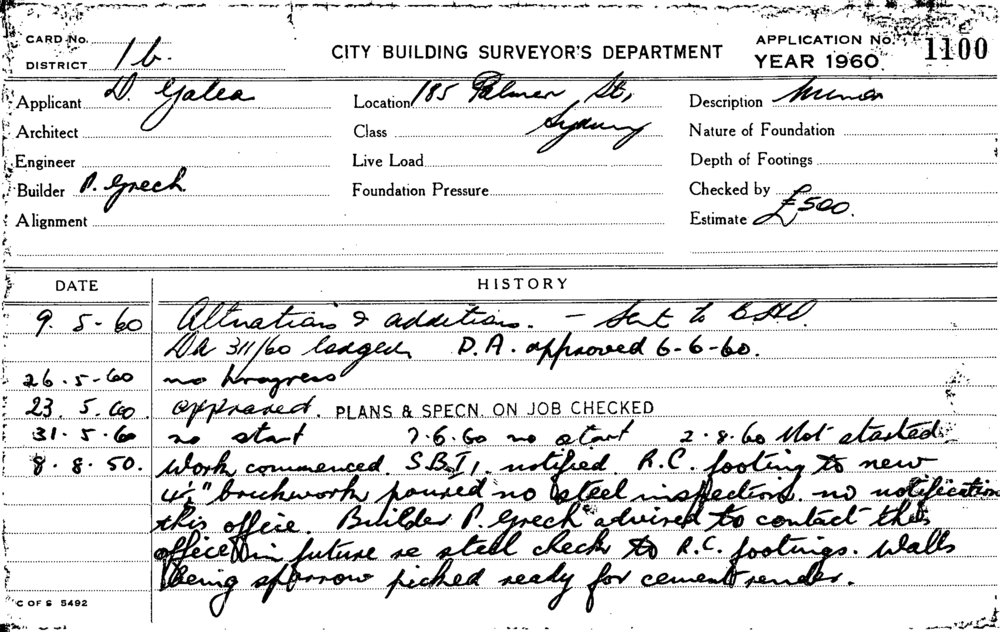 CARD No.
DISTRICT 1b.
CITY BUILDING SURVEYOR'S DEPARTMENT
APPLICATION No. 1100
YEAR 1960
Applicant D. Galea
Location 185 Palmer St,
Sydney
Description Minor
Architect
Class
Nature of Foundation
Engineer
Live Load
Depth of Footings
Builder P. Grech
Foundation Pressure
Checked by
Alignment
Estimate £500.
DATE HISTORY
9. 5-60 Alterations & additions. - Sent to C.H.O.
DA 311/60 lodged. D.A. approved 6-6-60.
26.5-60 no progress
23. 5.60. approved. PLANS & SPECN. ON JOB CHECKED
31.5.60 no start 7.6.60 no start 2.8.60 Not started
8.8.50. Work commenced. S.B.I., notified. R.C. footing to new
4½" brickwork poured no steel inspection. no notification
this office. Builder P. Grech advised to contact this
office in future re steel check to R.C. footings. Walls
being sparrow picked ready for cement render.
C OF S 5492